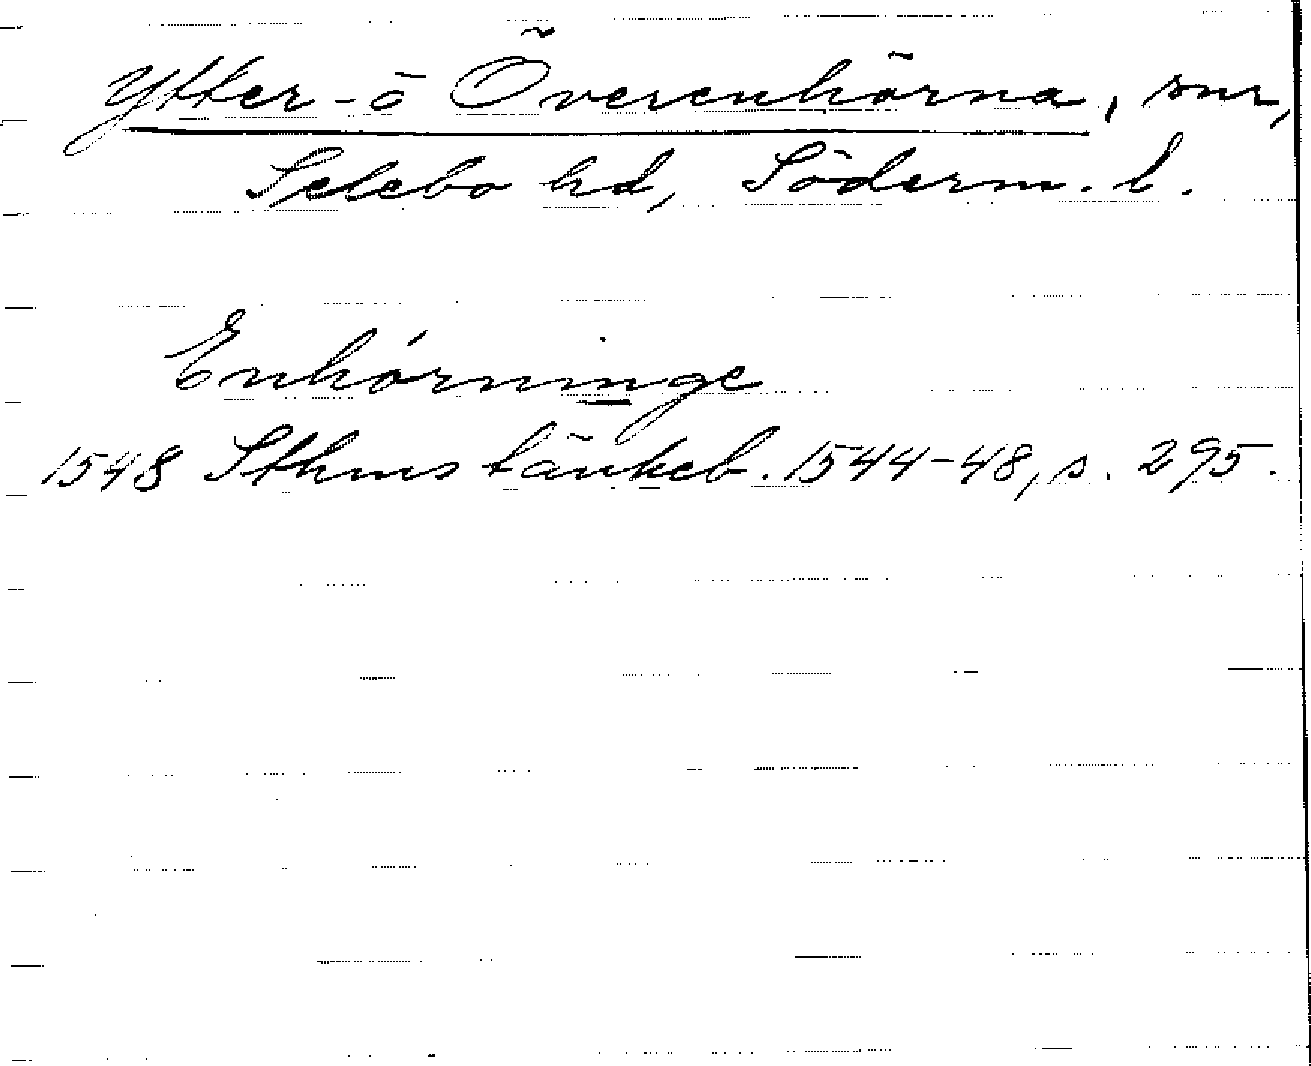 Ytter- o Överenhörna, snr,
Selebo hd, Söderm. l.
Enhörninge
1548 Sthms tänkeb. 1544-48, s. 295.